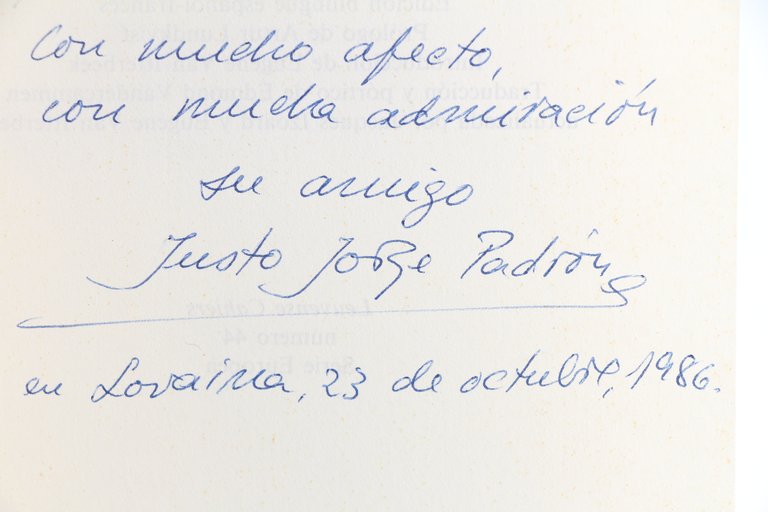 Con mucho afecto,
con mucha admiración
su amigo
Justo Jorge Padrón
en Lovaina, 23 de octubre, 1986.
Leuvense Cahiers
numero 44